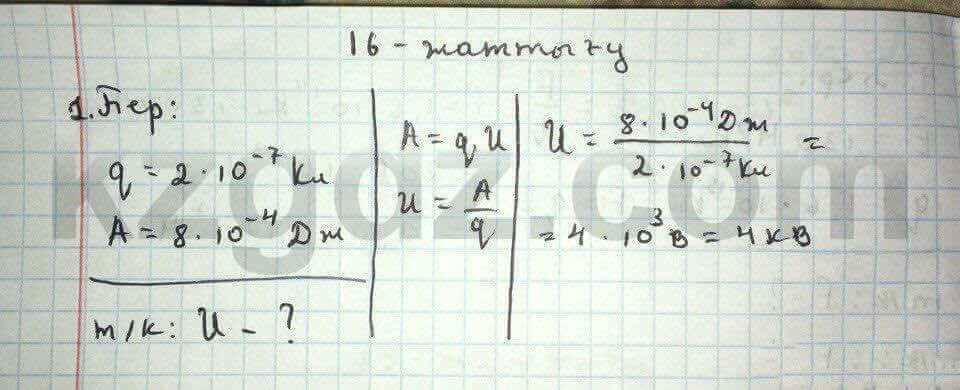 16 - жаттығу
1. Бер:
q = 2 · 10⁻⁷ Кл
A = 8 · 10⁻⁴ Дж
т/к: U - ?
A = qU
U = A/q
U = 8 · 10⁻⁴ Дж / 2 · 10⁻⁷ Кл =
= 4 · 10³ В = 4 кВ
kzgdz.com